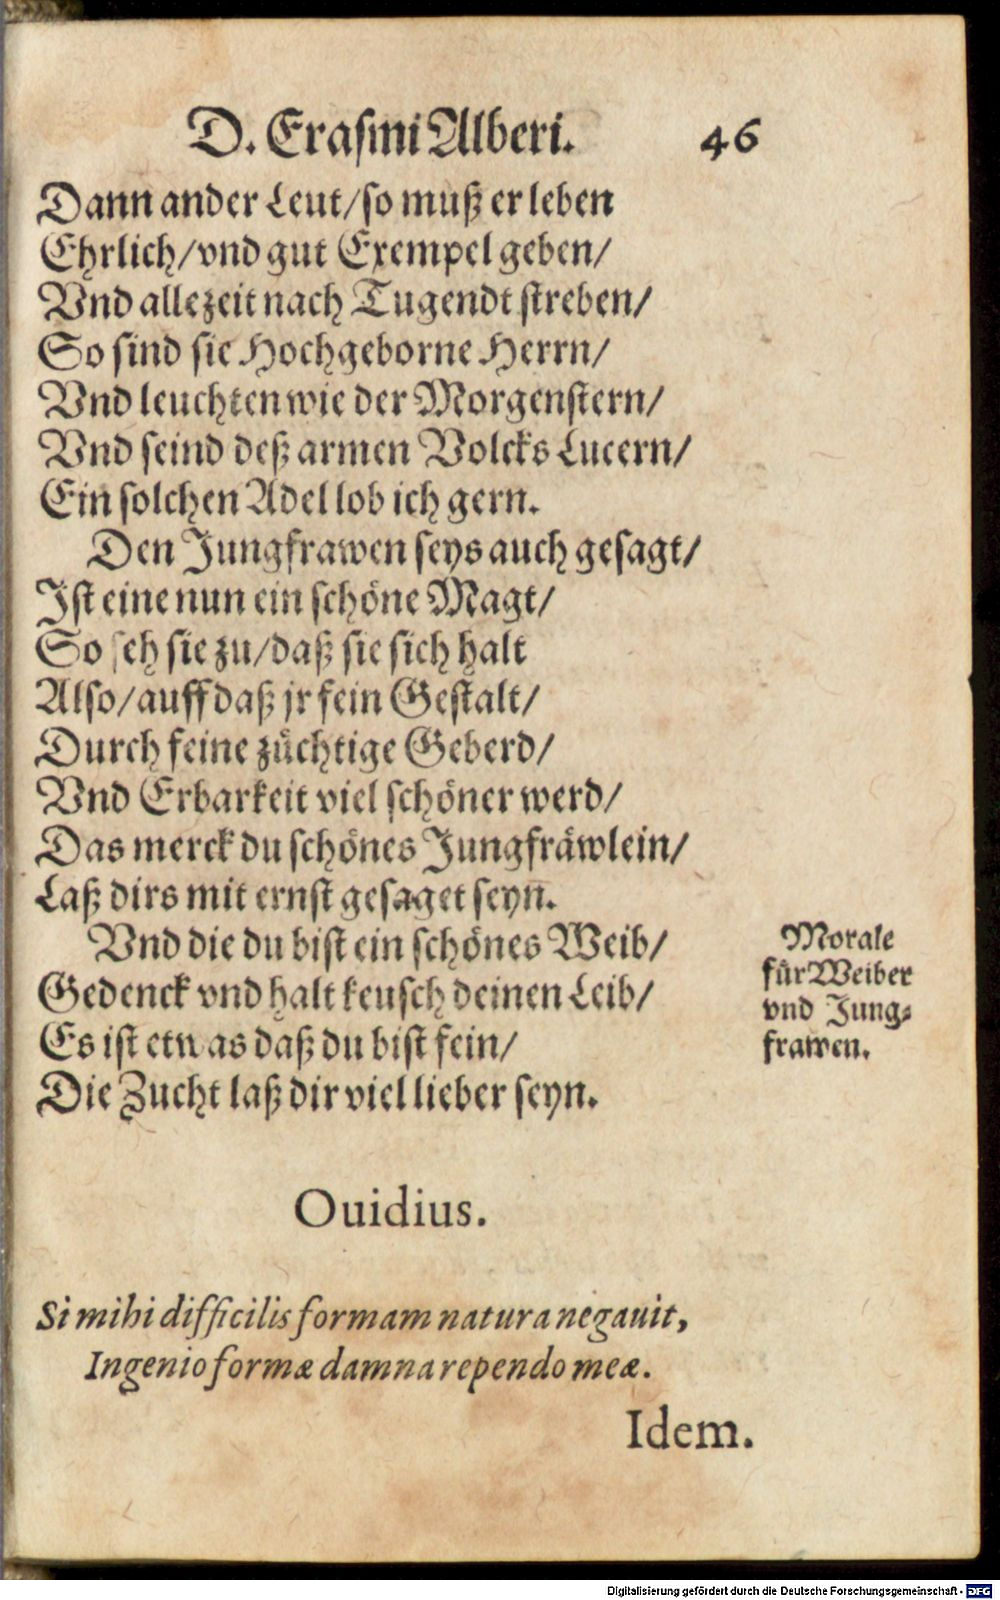 D. Erasmi Alberi. 46
Dann ander Leut/so muß er leben
Ehrlich/vnd gut Exempel geben/
Vnd allezeit nach Tugendt streben/
So sind sie Hochgeborne Herrn/
Vnd leuchten wie der Morgenstern/
Vnd seind deß armen Volcks Lucern/
Ein solchen Adel lob ich gern.
Den Jungfrawen seys auch gesagt/
Ist eine nun ein schöne Magt/
So seh sie zu/daß sie sich halt
Also/auff daß jr fein Gestalt/
Durch feine züchtige Geberd/
Vnd Erbarkeit viel schöner werd/
Das merck du schönes Jungfräwlein/
Laß dirs mit ernst gesaget seyn.
Vnd die du bist ein schönes Weib/
Gedenck vnd halt keusch deinen Leib/
Es ist etwas daß du bist fein/
Die Zucht laß dir viel lieber seyn.
Morale
für Weiber
vnd Jung-
frawen.
Ouidius.
Si mihi difficilis formam natura negauit,
Ingenio formæ damna rependo meæ.
Idem.
Digitalisierung gefördert durch die Deutsche Forschungsgemeinschaft - DFG